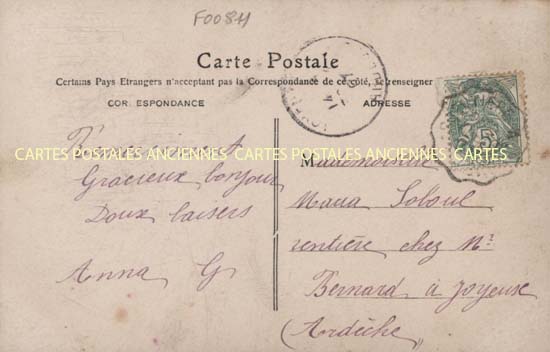 F0084
Carte Postale
Certains Pays Etrangers n'acceptant pas la Correspondance de ce côté, se renseigner
COR ESPONDANCE
ADRESSE
CARTES POSTALES ANCIENNES CARTES POSTALES ANCIENNES CARTES POSTALES
Gracieux bonjour
Doux baisers
Anna G
Mademoiselle
Maria
rentière chez Mr
Bernard à Joyeuse
(Ardèche)